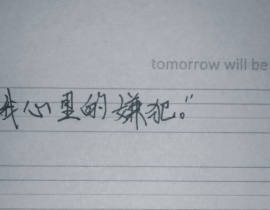 tomorrow will be
我心里的嫌犯。"